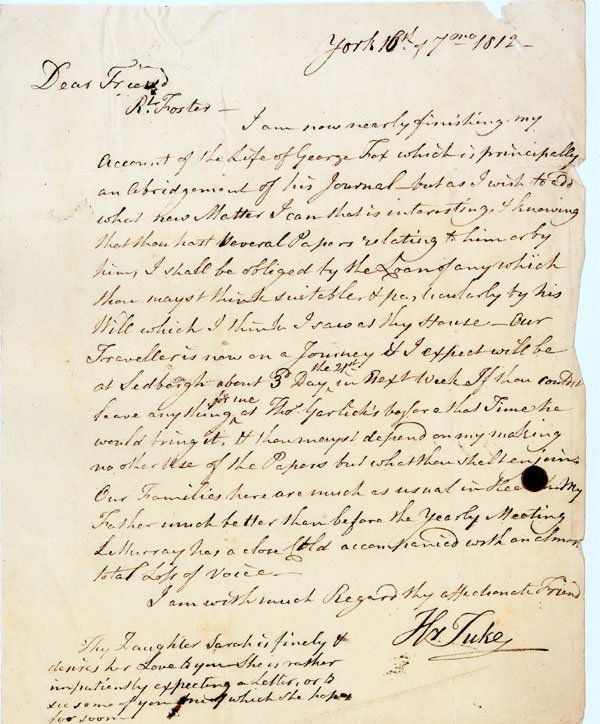 York 16th of 7mo 1812 –
Dear Friend
Rt. Foster –
I am now nearly finishing my
Account of the Life of George Fox which is principally
an abridgement of his Journal – but as I wish to add
what new Matter I can that is interesting, & knowing
that thou hast several Papers relating to him or by
him, I shall be obliged by the Loan of any which
thou mayst think suitable, & particularly by his
Will which I think I saw at thy House – Our
Traveller is now on a Journey & I expect will be
at Sedbergh about 3d Day the 21st in next Week If thou couldst
leave anything for me at Thos. Garlick's before that Time he
would bring it, & thou mayst depend on my making
no other Use of the Papers but what thou shalt enjoin
Our Families here are much as usual in My
Father much better than before the Yearly Meeting
L Murray has a close Cold accompanied with an almost
total Loss of Voice –
I am with much Regard thy affectionate Friend
Hy. Tuke
Thy Daughter Sarah is finely &
desires her Love to you – She is rather
impatiently expecting a Letter, or to
see some of you of which she hopes
for soon